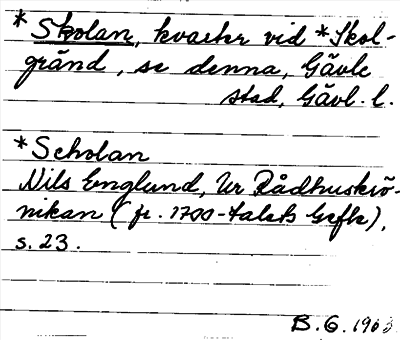 *Skolan, kvarter vid *Skol-
gränd, se denna, Gävle
stad, Gävl. l.
*Scholan
Nils Englund, Ur Rådhuskrö-
nikan (fr. 1700-talets Gefle),
s. 23.
B. G. 1963